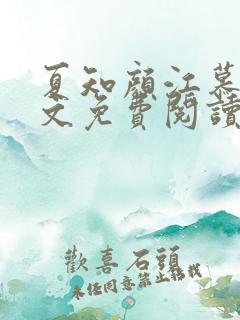 夏知顏江慕
文免費閱讀
歡喜石頭
未任同意禁止轉載